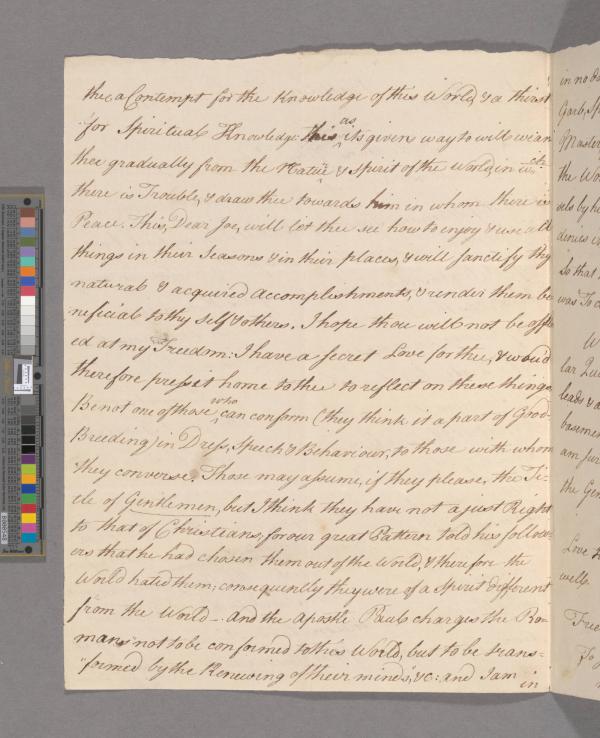 thee a Contempt for the Knowledge of this World, & a thirst
for Spiritual Knowledge: This as its given way to will wean
thee gradually from the Nature & Spirit of the World, in wch.
there is Trouble, & draw thee towards him in whom there is
Peace. This, Dear Joe, will let thee see how to enjoy & use all
things in their Seasons & in their places, & will sanctify thy
natural & acquired Accomplishments, & render them be
neficial to thy self & others. I hope thou will not be offd
ed at my Freedom: I have a secret Love for thee, & would
therefore press it home to thee to reflect on these things
Be not one of those who can conform (they think it a part of Good-
Breeding) in Dress, Speech & Behaviour, to those with whom
they converse. Those may assume, if they please, the Ti-
tle of Gentlemen, but I think they have not a just Right
to that of Christians, for our great Pattern told his follow
ers that he had chosen them out of the World, & therefore the
World hated them; consequently they were of a Spirit different
from the World — and the Apostle Paul charges the Ro-
mans "not to be conformed to this World, but to be trans=
"formed by the Renewing of their minds," &c: and I am
in
in no do
Garb, Sp
Master
the Wo
els by h
denies i
so that
was to
W
lar Qu
leads & a
basemen
am sur
the Gen
Love
well.
Frie
To J